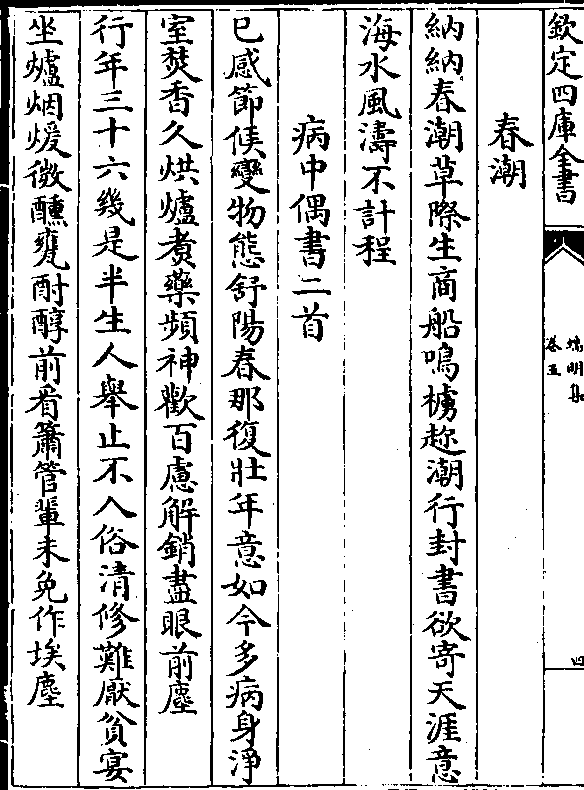 欽定四庫全書
端明集
卷五
四
春潮
納納春潮草際生商船鳴櫓趂潮行封書欲寄天涯意
海水風濤不計程
病中偶書二首
已感節候變物態舒陽春那復壯年意如今多病身淨
室焚香久烘爐煑藥頻神歡百慮解銷盡眼前塵
行年三十六幾是半生人舉止不入俗清修難厭貧宴
坐爐烟煖微醺甕酎醇前看簫管輩未免作埃塵